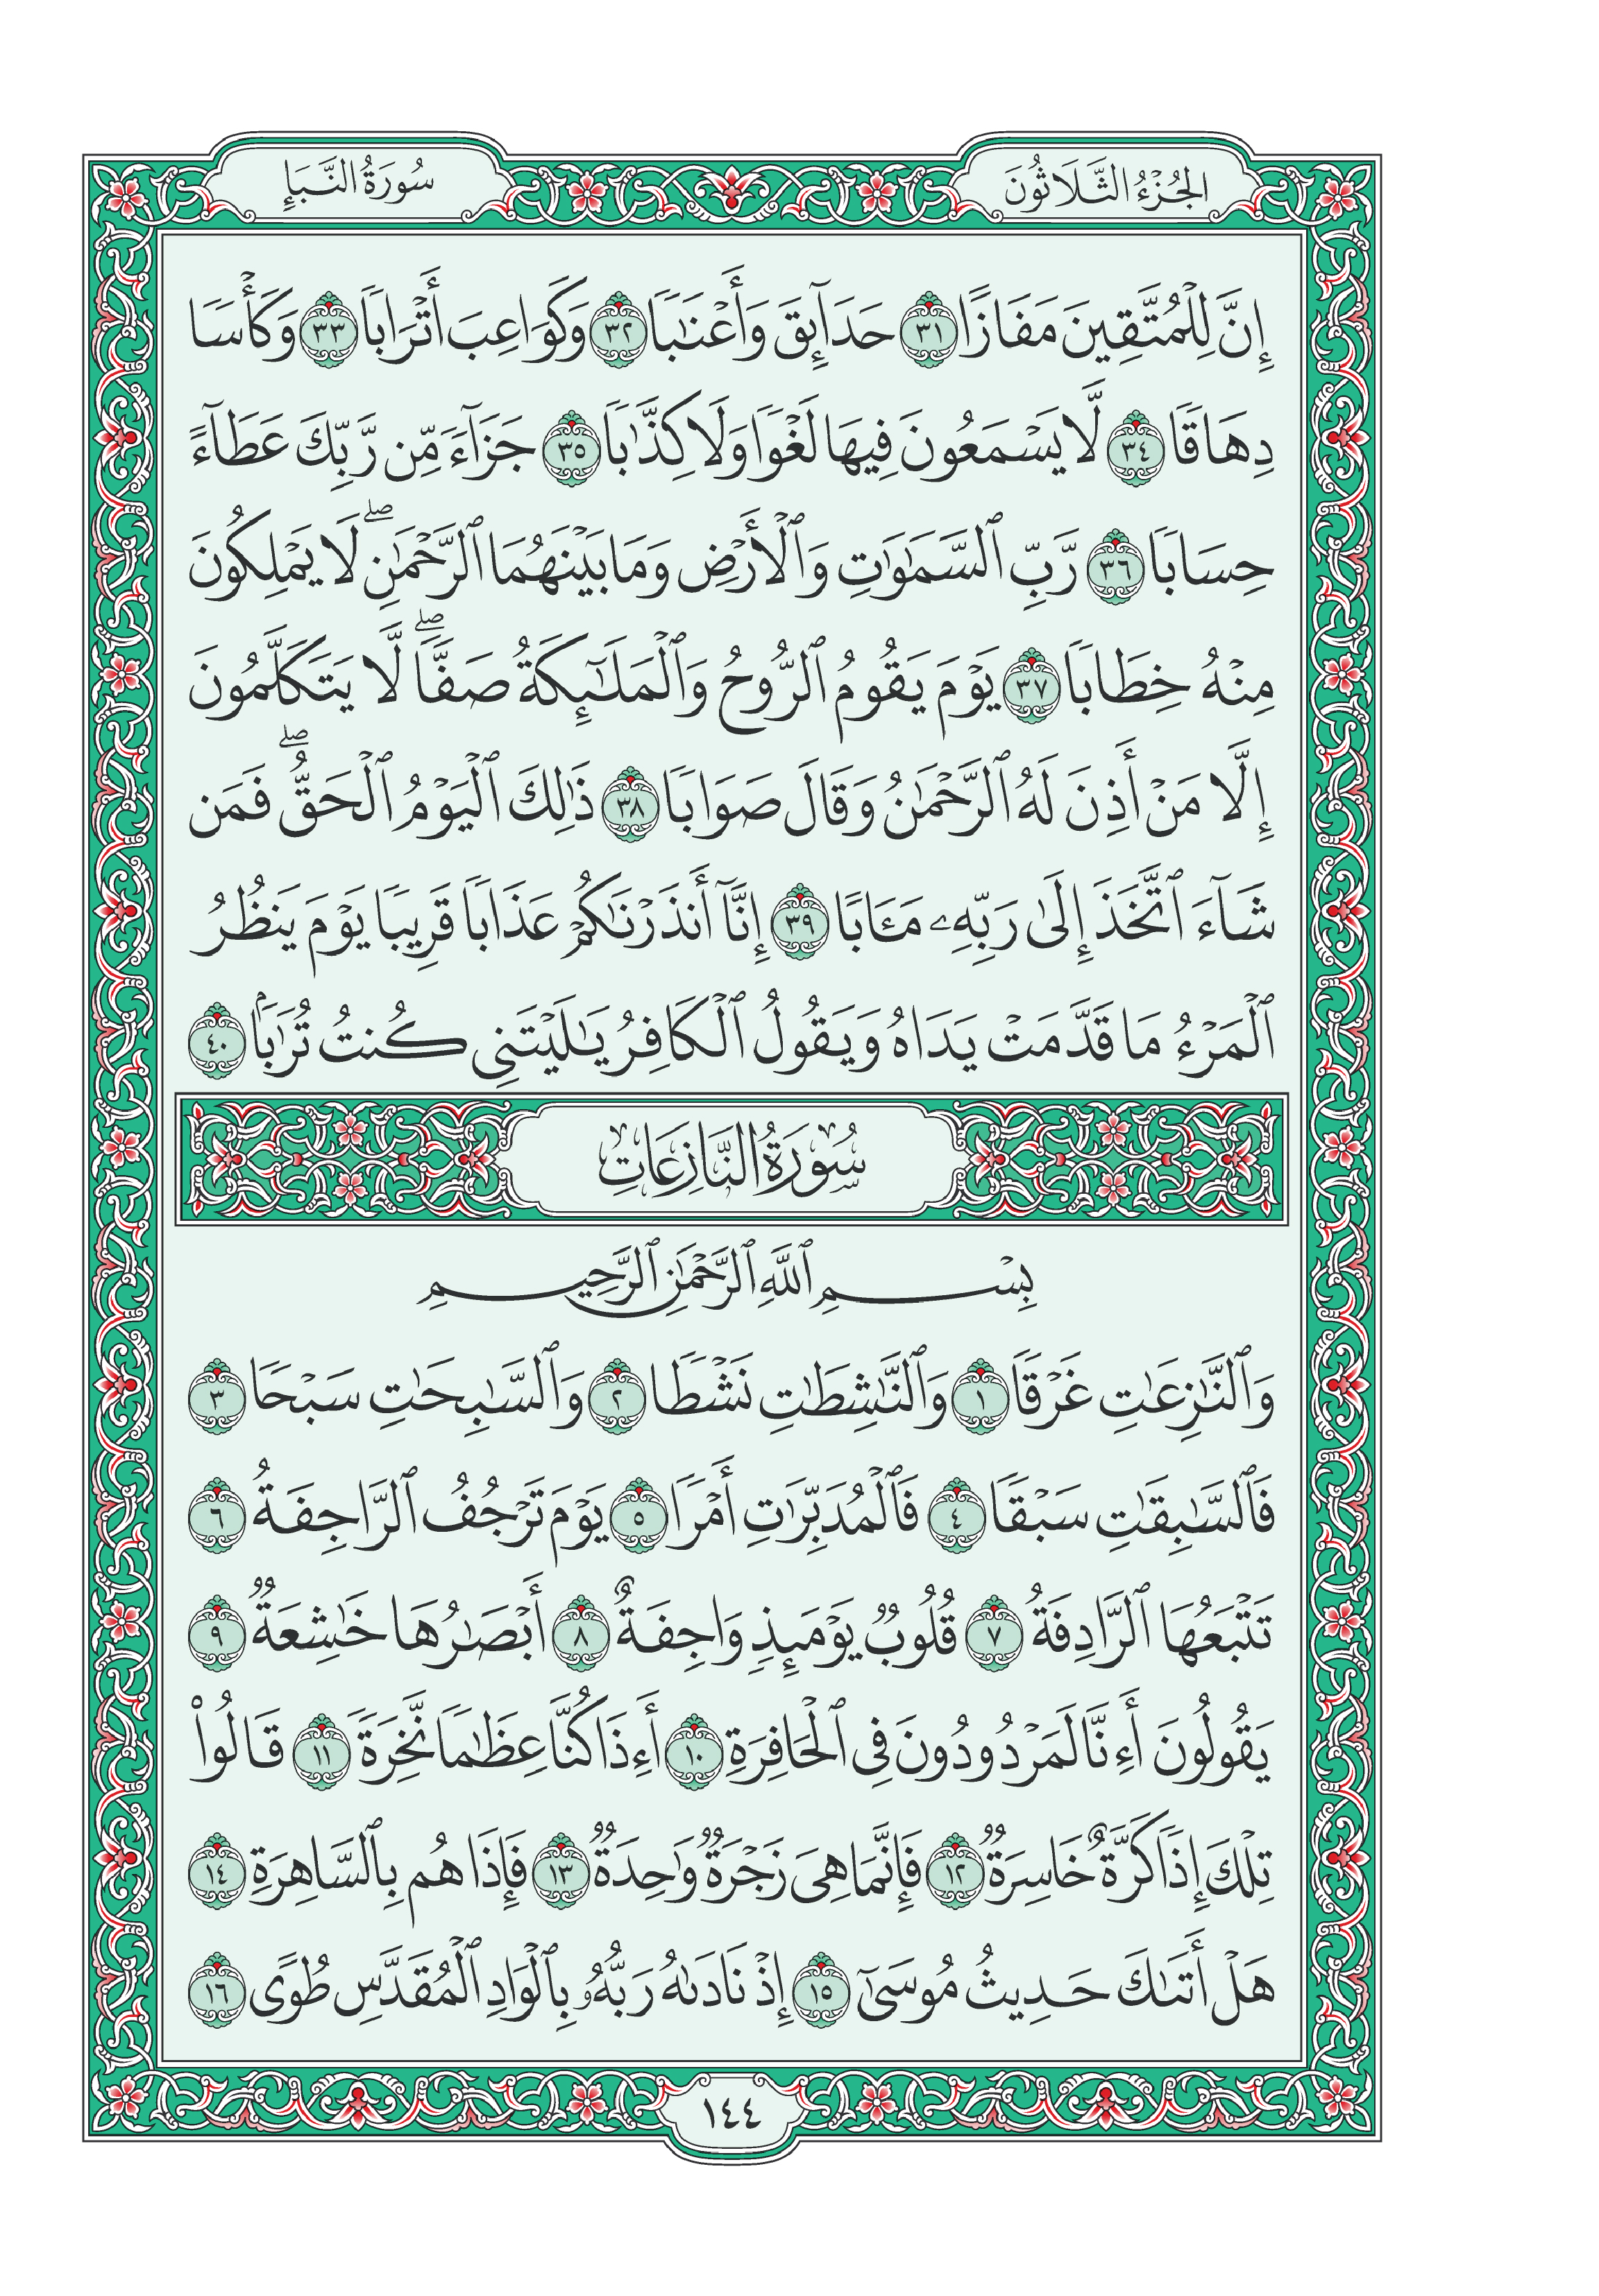 الجُزْءُ الثَّلَاثُونَ
سُورَةُ النَّبَإِ
إِنَّ لِلْمُتَّقِينَ مَفَازًا ٣١ حَدَآئِقَ وَأَعْنَٰبًا ٣٢ وَكَوَاعِبَ أَتْرَابًا ٣٣ وَكَأْسًا
دِهَاقًا ٣٤ لَّا يَسْمَعُونَ فِيهَا لَغْوًا وَلَا كِذَّٰبًا ٣٥ جَزَآءً مِّن رَّبِّكَ عَطَآءً
حِسَابًا ٣٦ رَّبِّ ٱلسَّمَٰوَٰتِ وَٱلْأَرْضِ وَمَا بَيْنَهُمَا ٱلرَّحْمَٰنِۖ لَا يَمْلِكُونَ
مِنْهُ خِطَابًا ٣٧ يَوْمَ يَقُومُ ٱلرُّوحُ وَٱلْمَلَٰٓئِكَةُ صَفًّاۖ لَّا يَتَكَلَّمُونَ
إِلَّا مَنْ أَذِنَ لَهُ ٱلرَّحْمَٰنُ وَقَالَ صَوَابًا ٣٨ ذَٰلِكَ ٱلْيَوْمُ ٱلْحَقُّۖ فَمَن
شَآءَ ٱتَّخَذَ إِلَىٰ رَبِّهِۦ مَـَٔابًا ٣٩ إِنَّآ أَنذَرْنَٰكُمْ عَذَابًا قَرِيبًا يَوْمَ يَنظُرُ
ٱلْمَرْءُ مَا قَدَّمَتْ يَدَاهُ وَيَقُولُ ٱلْكَافِرُ يَٰلَيْتَنِى كُنتُ تُرَٰبًۢا ٤٠
سُورَةُ النَّازِعَاتِ
بِسْمِ ٱللَّهِ ٱلرَّحْمَٰنِ ٱلرَّحِيمِ
وَٱلنَّٰزِعَٰتِ غَرْقًا ١ وَٱلنَّٰشِطَٰتِ نَشْطًا ٢ وَٱلسَّٰبِحَٰتِ سَبْحًا ٣
فَٱلسَّٰبِقَٰتِ سَبْقًا ٤ فَٱلْمُدَبِّرَٰتِ أَمْرًا ٥ يَوْمَ تَرْجُفُ ٱلرَّاجِفَةُ ٦
تَتْبَعُهَا ٱلرَّادِفَةُ ٧ قُلُوبٌ يَوْمَئِذٍ وَاجِفَةٌ ٨ أَبْصَٰرُهَا خَٰشِعَةٌ ٩
يَقُولُونَ أَءِنَّا لَمَرْدُودُونَ فِى ٱلْحَافِرَةِ ١٠ أَءِذَا كُنَّا عِظَٰمًا نَّخِرَةً ١١ قَالُوا۟
تِلْكَ إِذًا كَرَّةٌ خَاسِرَةٌ ١٢ فَإِنَّمَا هِىَ زَجْرَةٌ وَٰحِدَةٌ ١٣ فَإِذَا هُم بِٱلسَّاهِرَةِ ١٤
هَلْ أَتَىٰكَ حَدِيثُ مُوسَىٰٓ ١٥ إِذْ نَادَىٰهُ رَبُّهُۥ بِٱلْوَادِ ٱلْمُقَدَّسِ طُوًى ١٦
١٤٤